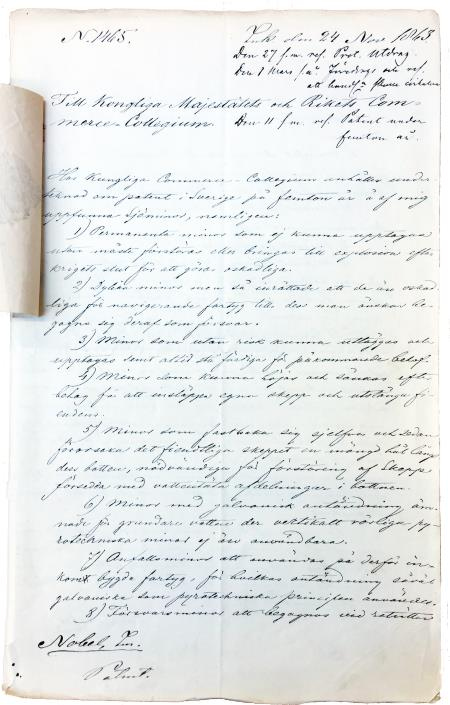 N. 1465.
Ink. den 24 Nov. 1863.
Den 27 s.m. ref. Prot. Utdrag.
Den 1 Mars s.å. Föredrogs och ref.
att handl.
Den 11 s.m. ref. Patent under
femton år.
Till Kongliga Majestätets och Rikets Com-
merce-Collegium.
Hos Kungliga Commerce-Collegium anhålles under-
tecknad om patent i Sverige på femton år å af mig
uppfunna Sjöminor, nemligen:
1) Permanenta minor som ej kunna upptagas
utan måste förstöras eller bringas till explosion efter
krigets slut för att göras oskadliga.
2) Dylika minor men så inrättade att de äro oskad-
liga för navigerande fartyg tills dess man önskar be-
gagna sig deraf som försvar.
3) Minor som utan risk kunna utläggas och
upptagas samt alltid stå färdiga för påkommande behof.
4) Minor som kunna höjas och sänkas efter
behag för att insläppa egna skepp och utstänga fi-
endens.
5) Minor som fasthaka sig sjelfva och sedan
förorsaka det fiendtliga skeppet en mängd hål längs
dess botten, nödvändiga för förstöring af skepp
försedda med vattentäta afdelningar i bottnen.
6) Minor med galvanisk antändning äm-
nade för grundare vatten der vertikalt rörliga py-
rotechniska minor ej äro användbara.
7) Anfallsminor att användas på derför en-
komt byggda fartyg, för hvilkas antändning såväl
galvaniska som pyrotechniska principen användes.
8) Försvarsminor att begagnas vid reträtter
Nobel, Im.
Patent.